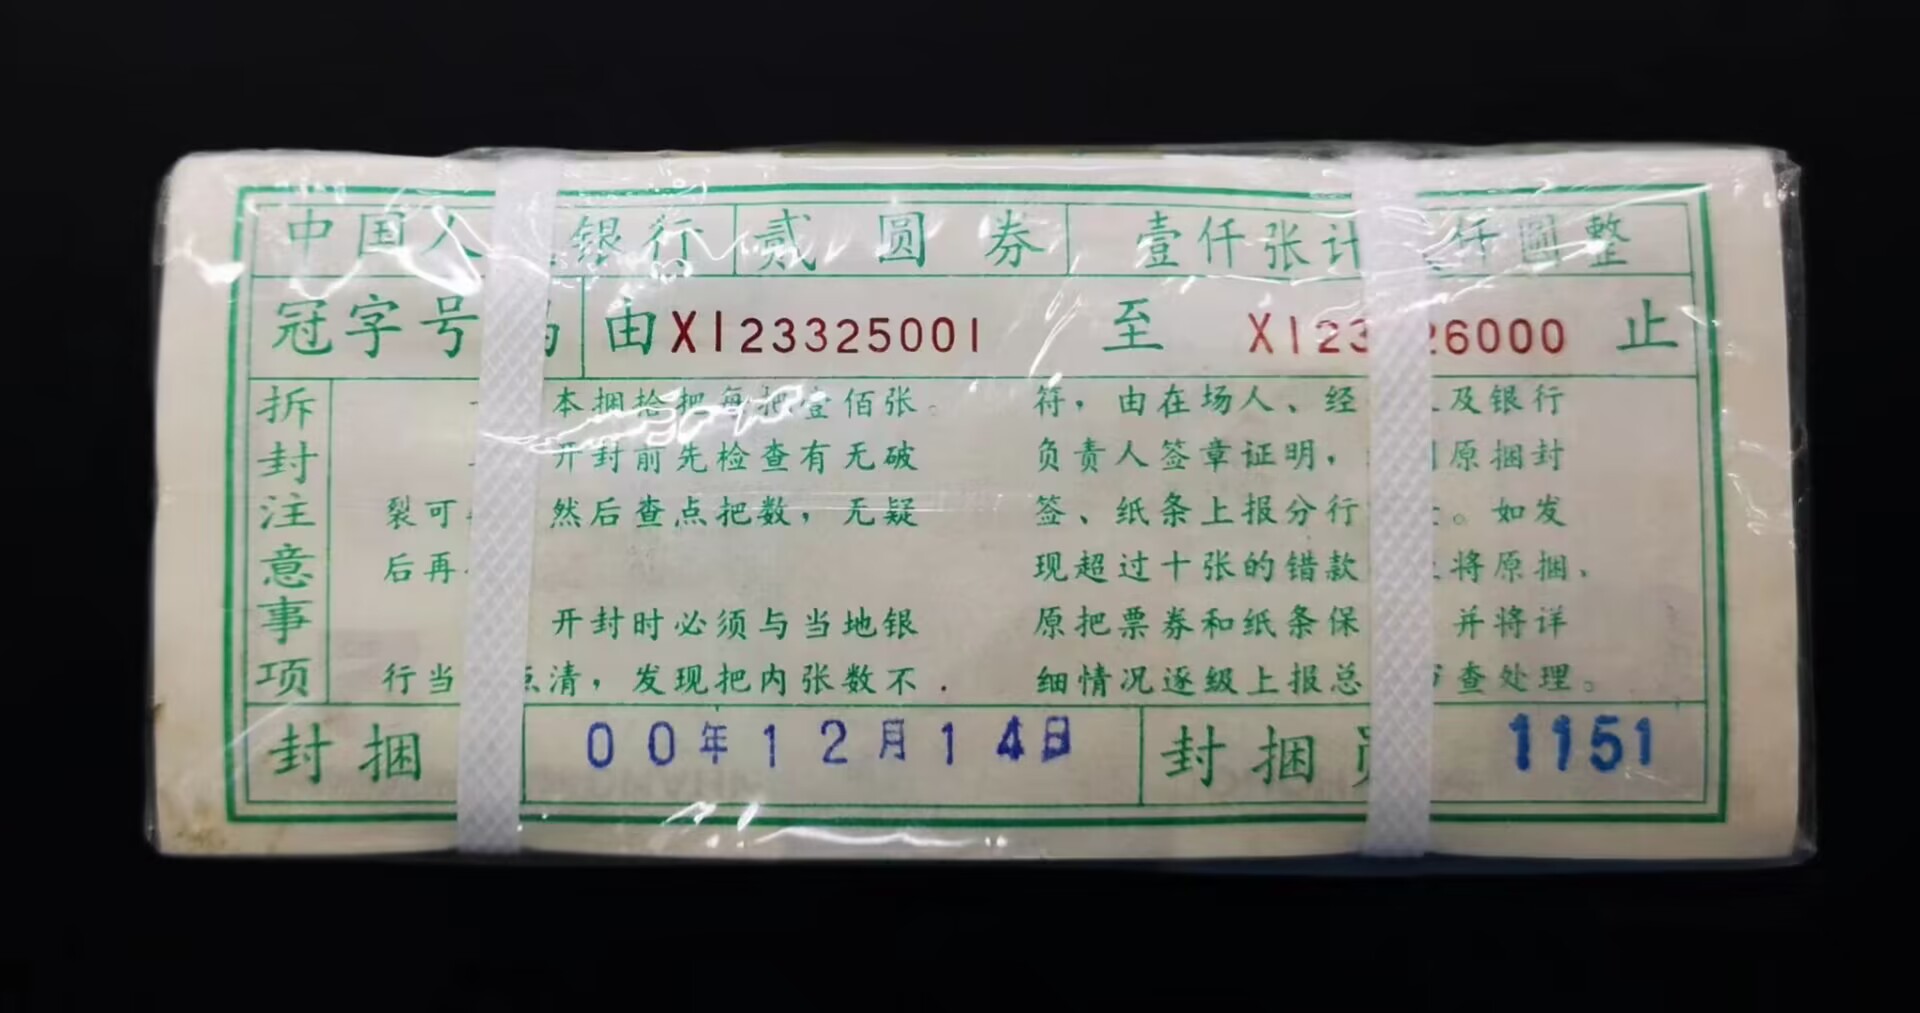 中国人 银行 贰圆券 壹仟张计 仟圆整
冠字号 由X123325001 至 X123 26000 止
拆封注意事项
本捆拾把每把壹佰张。
开封前先检查有无破
裂可 然后查点把数，无疑
后再
开封时必须与当地银
行当 点清，发现把内张数不
符，由在场人、经 及银行
负责人签章证明， 原捆封
签、纸条上报分行 。如发
现超过十张的错款 将原捆、
原把票券和纸条保 并将详
细情况逐级上报总 查处理。
封捆 00年12月14日 封捆员 1151